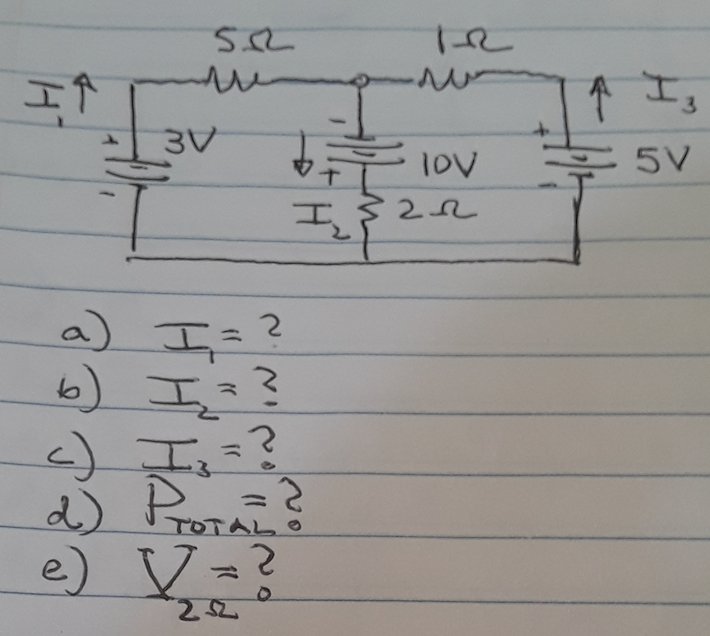 5Ω 1Ω
I₁ ↑ ↑ I₃
+ 3V - + 5V
- ↓ + 10V -
I₂ 2Ω
a) I₁ = ?
b) I₂ = ?
c) I₃ = ?
d) P_TOTAL = ?
e) V_2Ω = ?